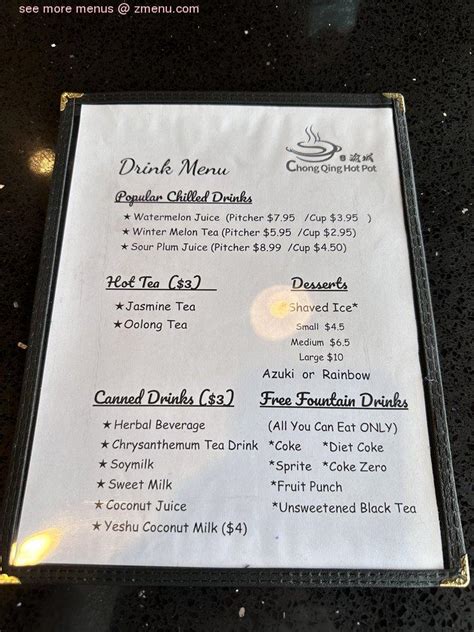 see more menus @ zmenu.com
Chong Qing Hot Pot
Drink Menu
Popular Chilled Drinks
★ Watermelon Juice (Pitcher $7.95 /Cup $3.95 )
★ Winter Melon Tea (Pitcher $5.95 /Cup $2.95)
★ Sour Plum Juice (Pitcher $8.99 /Cup $4.50)
Hot Tea ($3)
★Jasmine Tea
★Oolong Tea
Desserts
*Shaved Ice*
Small $4.5
Medium $6.5
Large $10
Azuki or Rainbow
Canned Drinks ($3)
★ Herbal Beverage
★ Chrysanthemum Tea Drink
★ Soymilk
★ Sweet Milk
★ Coconut Juice
★ Yeshu Coconut Milk ($4)
Free Fountain Drinks
(All You Can Eat ONLY)
*Coke *Diet Coke
*Sprite *Coke Zero
*Fruit Punch
*Unsweetened Black Tea